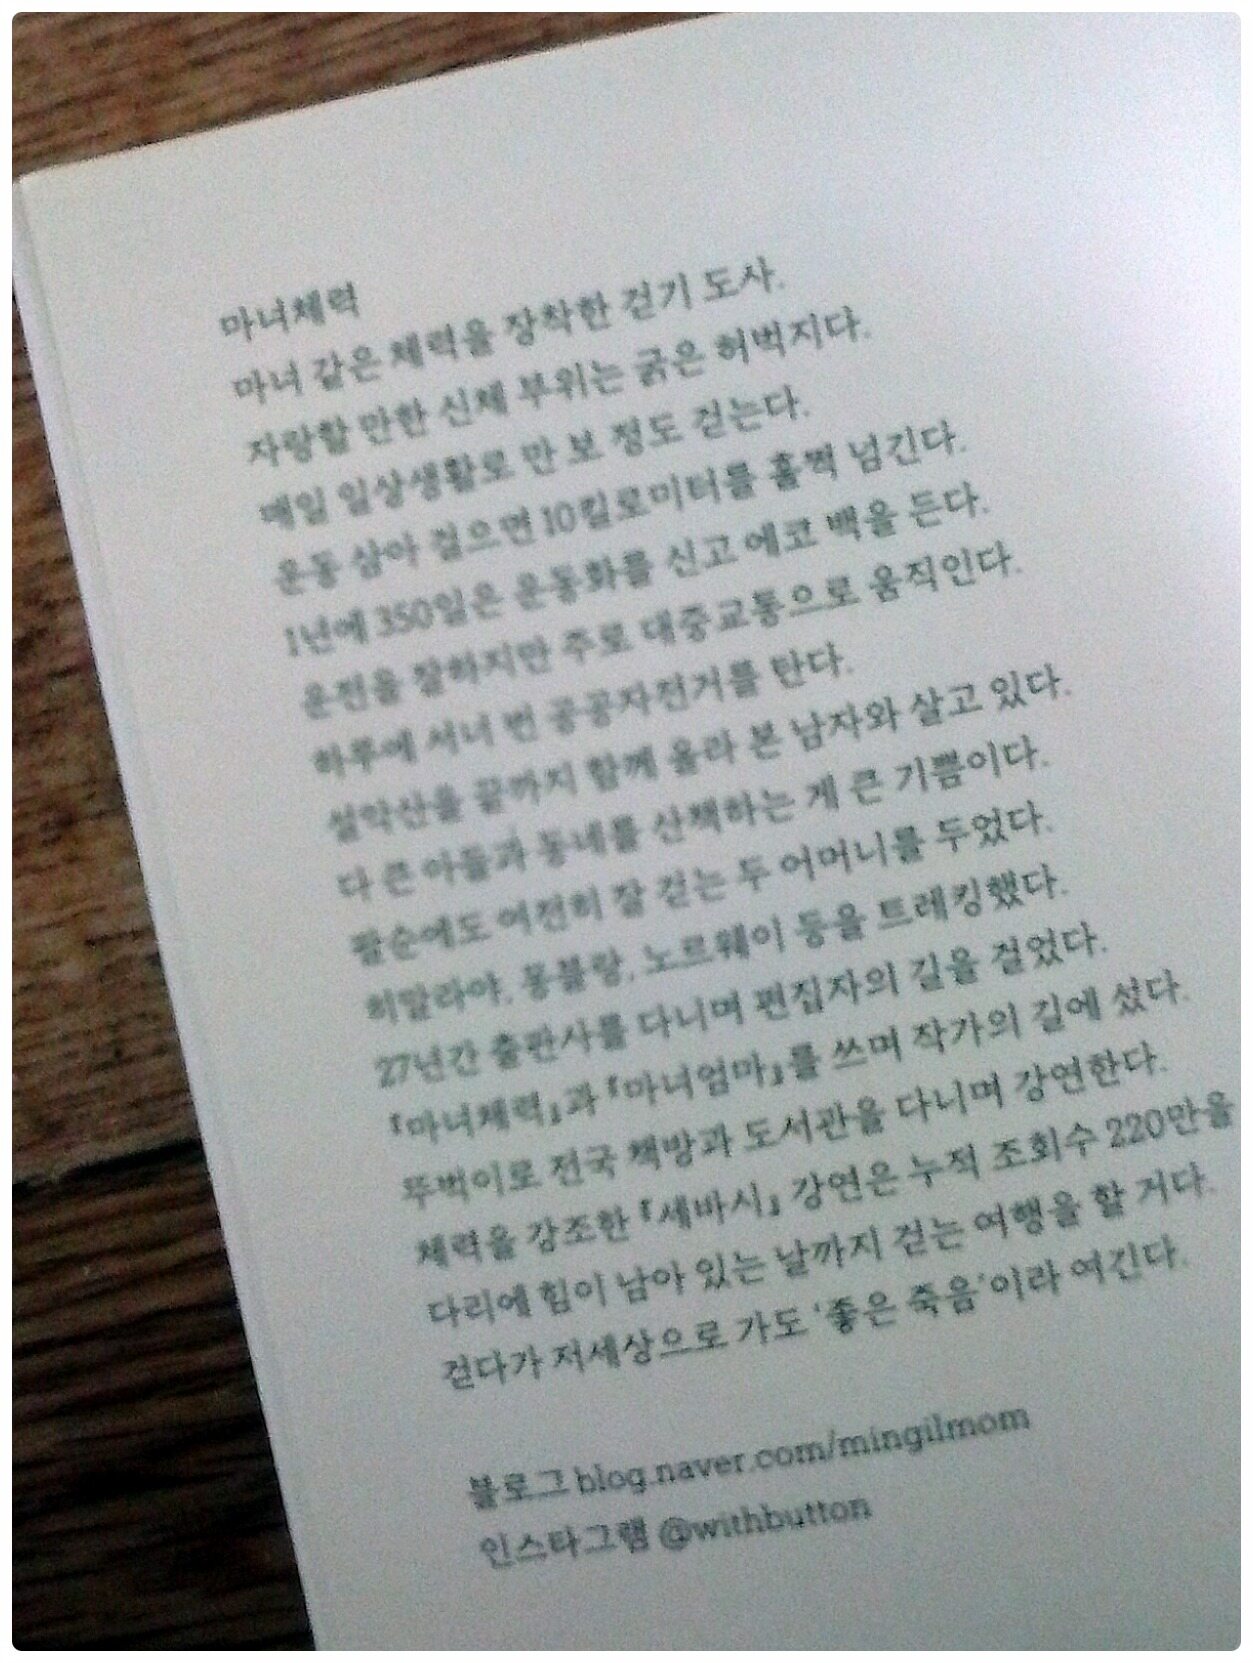 마녀체력
마녀 같은 체력을 장착한 걷기 도사.
자랑할 만한 신체 부위는 굵은 허벅지다.
매일 일상생활로 만 보 정도 걷는다.
운동 삼아 걸으면 10킬로미터를 훌쩍 넘긴다.
1년에 350일은 운동화를 신고 에코 백을 든다.
운전을 잘하지만 주로 대중교통으로 움직인다.
하루에 서너 번 공공자전거를 탄다.
설악산을 끝까지 함께 올라 본 남자와 살고 있다.
다 큰 아들과 동네를 산책하는 게 큰 기쁨이다.
팔순에도 여전히 잘 걷는 두 어머니를 두었다.
히말라야, 몽블랑, 노르웨이 등을 트레킹했다.
27년간 출판사를 다니며 편집자의 길을 걸었다.
『마녀체력』과 『마녀엄마』를 쓰며 작가의 길에 섰다.
뚜벅이로 전국 책방과 도서관을 다니며 강연한다.
체력을 강조한 『세바시』 강연은 누적 조회수 220만을
다리에 힘이 남아 있는 날까지 걷는 여행을 할 거다.
걷다가 저세상으로 가도 '좋은 죽음'이라 여긴다.
블로그 blog.naver.com/mingilmom
인스타그램 @withbutton